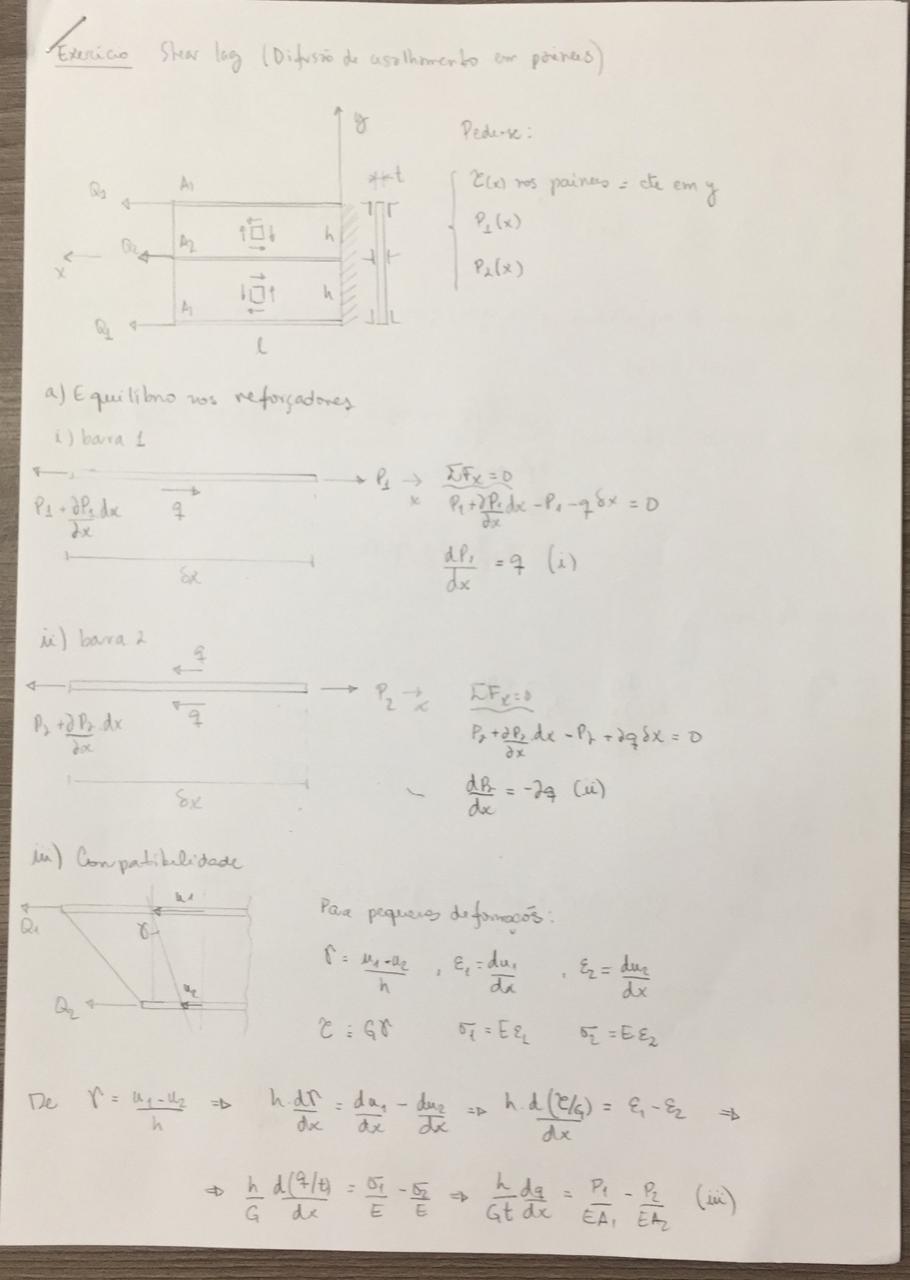 Exercício Shear lag (Difusão de cisalhamento em painéis)
y
Pede-se:
t
Q1 A1
τ(x) nos paineis = cte em y
h
P1(x)
Q2 A2
x
P2(x)
h
Q1 A1
l
a) Equilíbrio nos reforçadores
i) barra 1
P1 → x ΣFx = 0
P1 + ∂P1/∂x dx q P1 + ∂P1/∂x dx - P1 - q δx = 0
δx
dP1/dx = q (i)
ii) barra 2
q
P2 → x ΣFx = 0
P2 + ∂P2/∂x dx q P2 + ∂P2/∂x dx - P2 + 2q δx = 0
δx
dP2/dx = -2q (ii)
iii) Compatibilidade
u1
Q1
γ
Para pequenas deformações:
γ = u1 - u2/h , ε1 = du1/dx , ε2 = du2/dx
u2
Q2
τ = Gγ σ1 = Eε1 σ2 = Eε2
De γ = u1 - u2/h ⇒ h.dγ/dx = du1/dx - du2/dx ⇒ h.d(τ/G)/dx = ε1 - ε2 ⇒
⇒ h/G d(q/t)/dx = σ1/E - σ2/E ⇒ h/Gt dq/dx = P1/EA1 - P2/EA2 (iii)